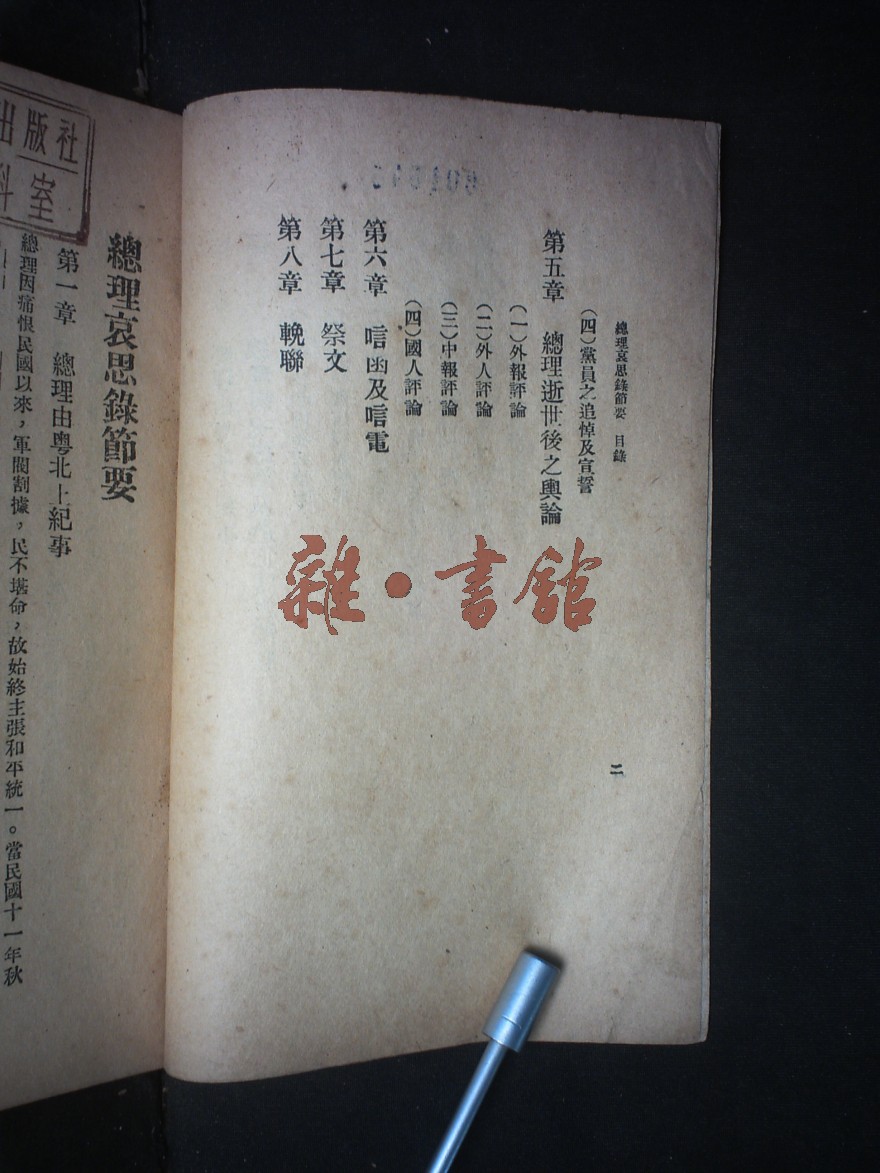 總理哀思錄節要　目錄
(四)黨員之追悼及宣誓
第五章　總理逝世後之輿論
(一)外報評論
(二)外人評論
(三)中報評論
(四)國人評論
第六章　唁函及唁電
第七章　祭文
第八章　輓聯
二
雜·書館
出版社
料室
總理哀思錄節要
第一章　總理由粵北上紀事
總理因痛恨民國以來，軍閥割據，民不堪命，故始終主張和平統一。當民國十一年秋